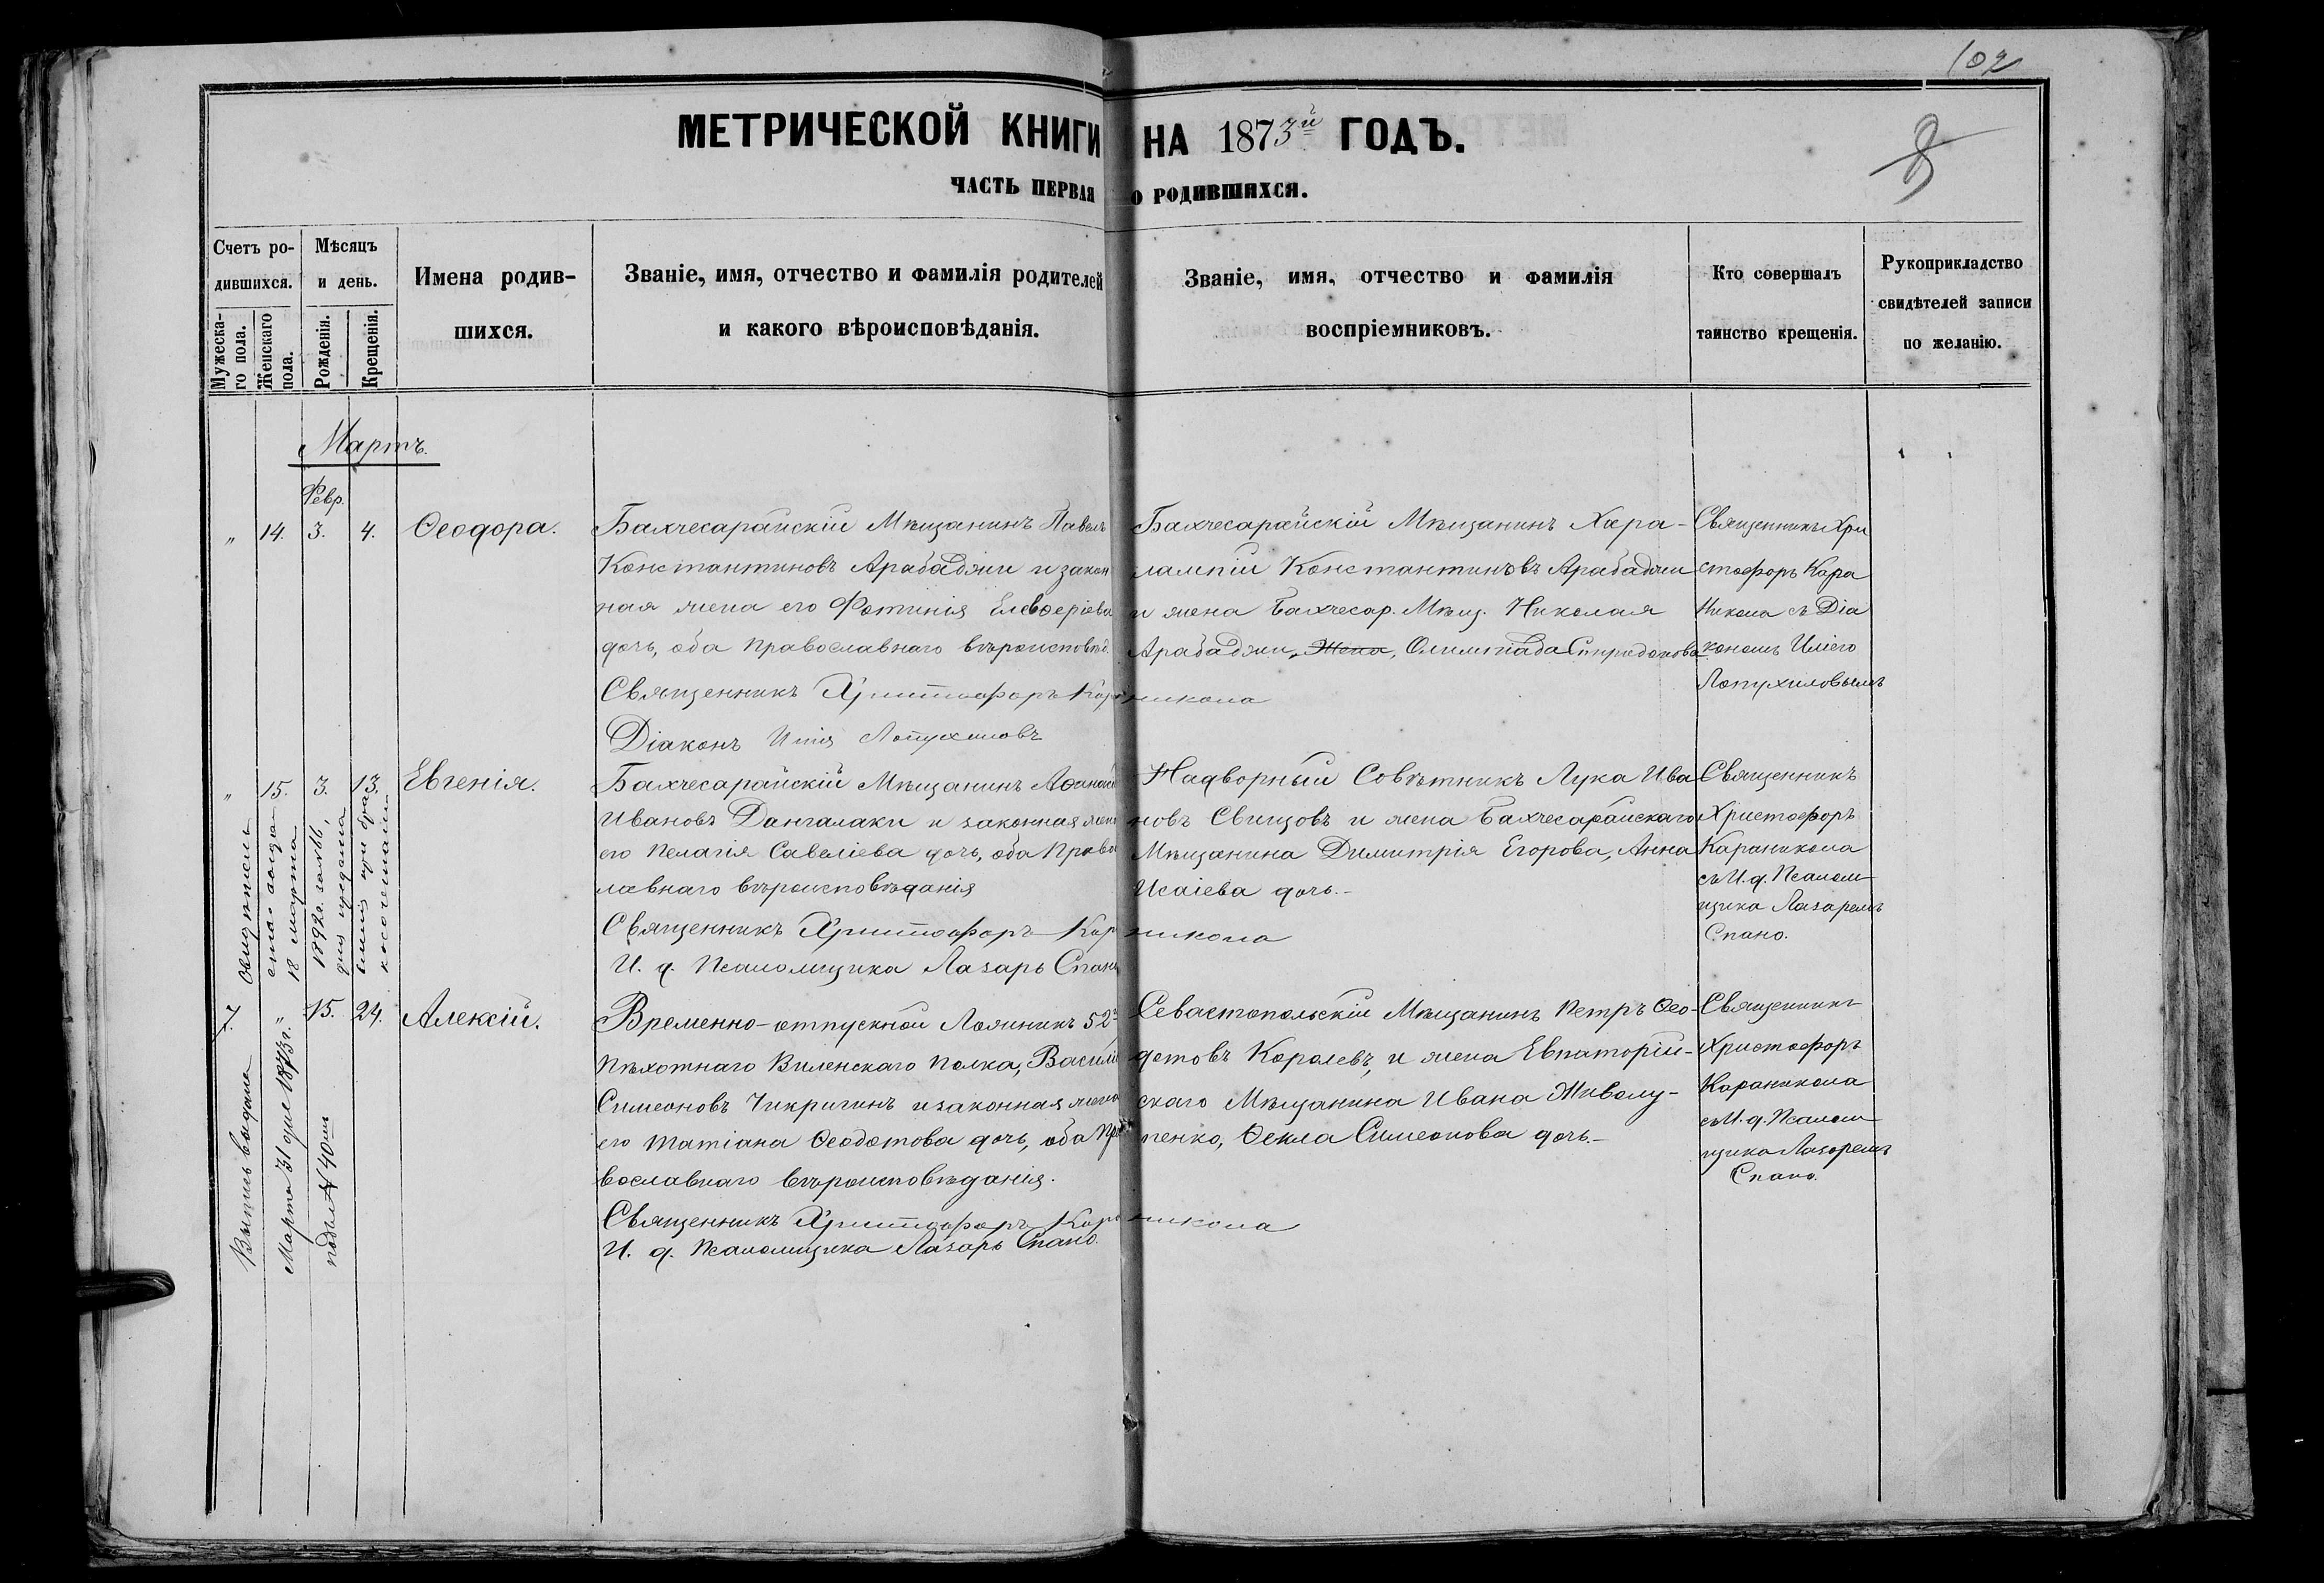 102
МЕТРИЧЕСКОЙ КНИГИ НА 1873й ГОДЪ.
8
ЧАСТЬ ПЕРВАЯ О РОДИВШИХСЯ.
Счетъ ро-
дившихся.
Мужеска-
го пола.
Женскаго
пола.
Мѣсяцъ
и день.
Рожденія.
Крещенія.
Имена родив-
шихся.
Званіе, имя, отчество и фамилія родителей
и какого вѣроисповѣданія.
Званіе, имя, отчество и фамилія
воспріемниковъ.
Кто совершалъ
таинство крещенія.
Рукоприкладство
свидѣтелей записи
по желанію.
Мартъ.
Февр.
„ 14. 3. 4. Ѳеодора.
Бахчесарайскій Мѣщанинъ Павелъ
Константиновъ Арабаджи и закон
ная жена его Фотинія Елевѳеріева
дочь, оба православнаго вѣроисповѣд.
Священникъ Христофоръ Караникола
Діаконъ Илія Лопухиловъ
Бахчесарайскій Мѣщанинъ Хара-
лампій Константиновъ Арабаджи
и жена Бахчесар. Мѣщ. Николая
Арабаджи, Жена, Олимпіада Спиридонова
Священникъ Хри
стофоръ Кара
Никола съ Діа
кономъ Иліею
Лопухиловымъ
„ 15. 3. 13. Евгенія.
Бахчесарайскій Мѣщанинъ Аѳанасій
Ивановъ Дангалаки и законная жена
его Пелагія Савеліева дочь, оба Право
лавнаго вѣроисповѣданія
Священникъ Христофоръ Караникола
И. д. Псаломщика Лазарь Спано
Надворный Совѣтникъ Лука Ива
новъ Свищовъ и жена Бахчесарайскаго
Мѣщанина Димитрія Егорова, Анна
Исаіева дочь.-
Священникъ
Христофоръ
Караникола
съ И. д. Псалом
щика Лазаремъ
Спано.
18 марта
1892г. за №16,
7. „ 15. 24. Алексій.
Временно-отпускной Ложникъ 52го
Пѣхотнаго Виленскаго полка, Василій
Симеоновъ Чикригинъ и законная жена
его Татіана Ѳеодотова дочь, оба Пра
вославнаго вѣроисповѣданія.
Священникъ Христофоръ Караникола
И. д. Псаломщика Лазарь Спано.
Севастопольскій Мѣщанинъ Петръ Ѳео-
дотовъ Королевъ, и жена Евпаторій-
скаго Мѣщанина Ивана Живолу-
пенко, Ѳекла Симеонова дочь.-
Священникъ
Христофоръ
Караникола
съ И. д. Псалом
щика Лазаремъ
Спано.
Выпись выдана
Марта 31 дня 1873г.
подъ №40мъ